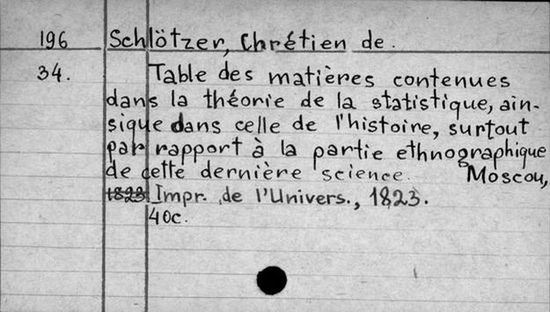 196 Schlötzer, Chrétien de.
34. Table des matières contenues
dans la théorie de la statistique, ain-
sique dans celle de l'histoire, surtout
par rapport à la partie ethnographique
de cette dernière science. Moscou,
1823 Impr. de l'Univers., 1823.
40c.